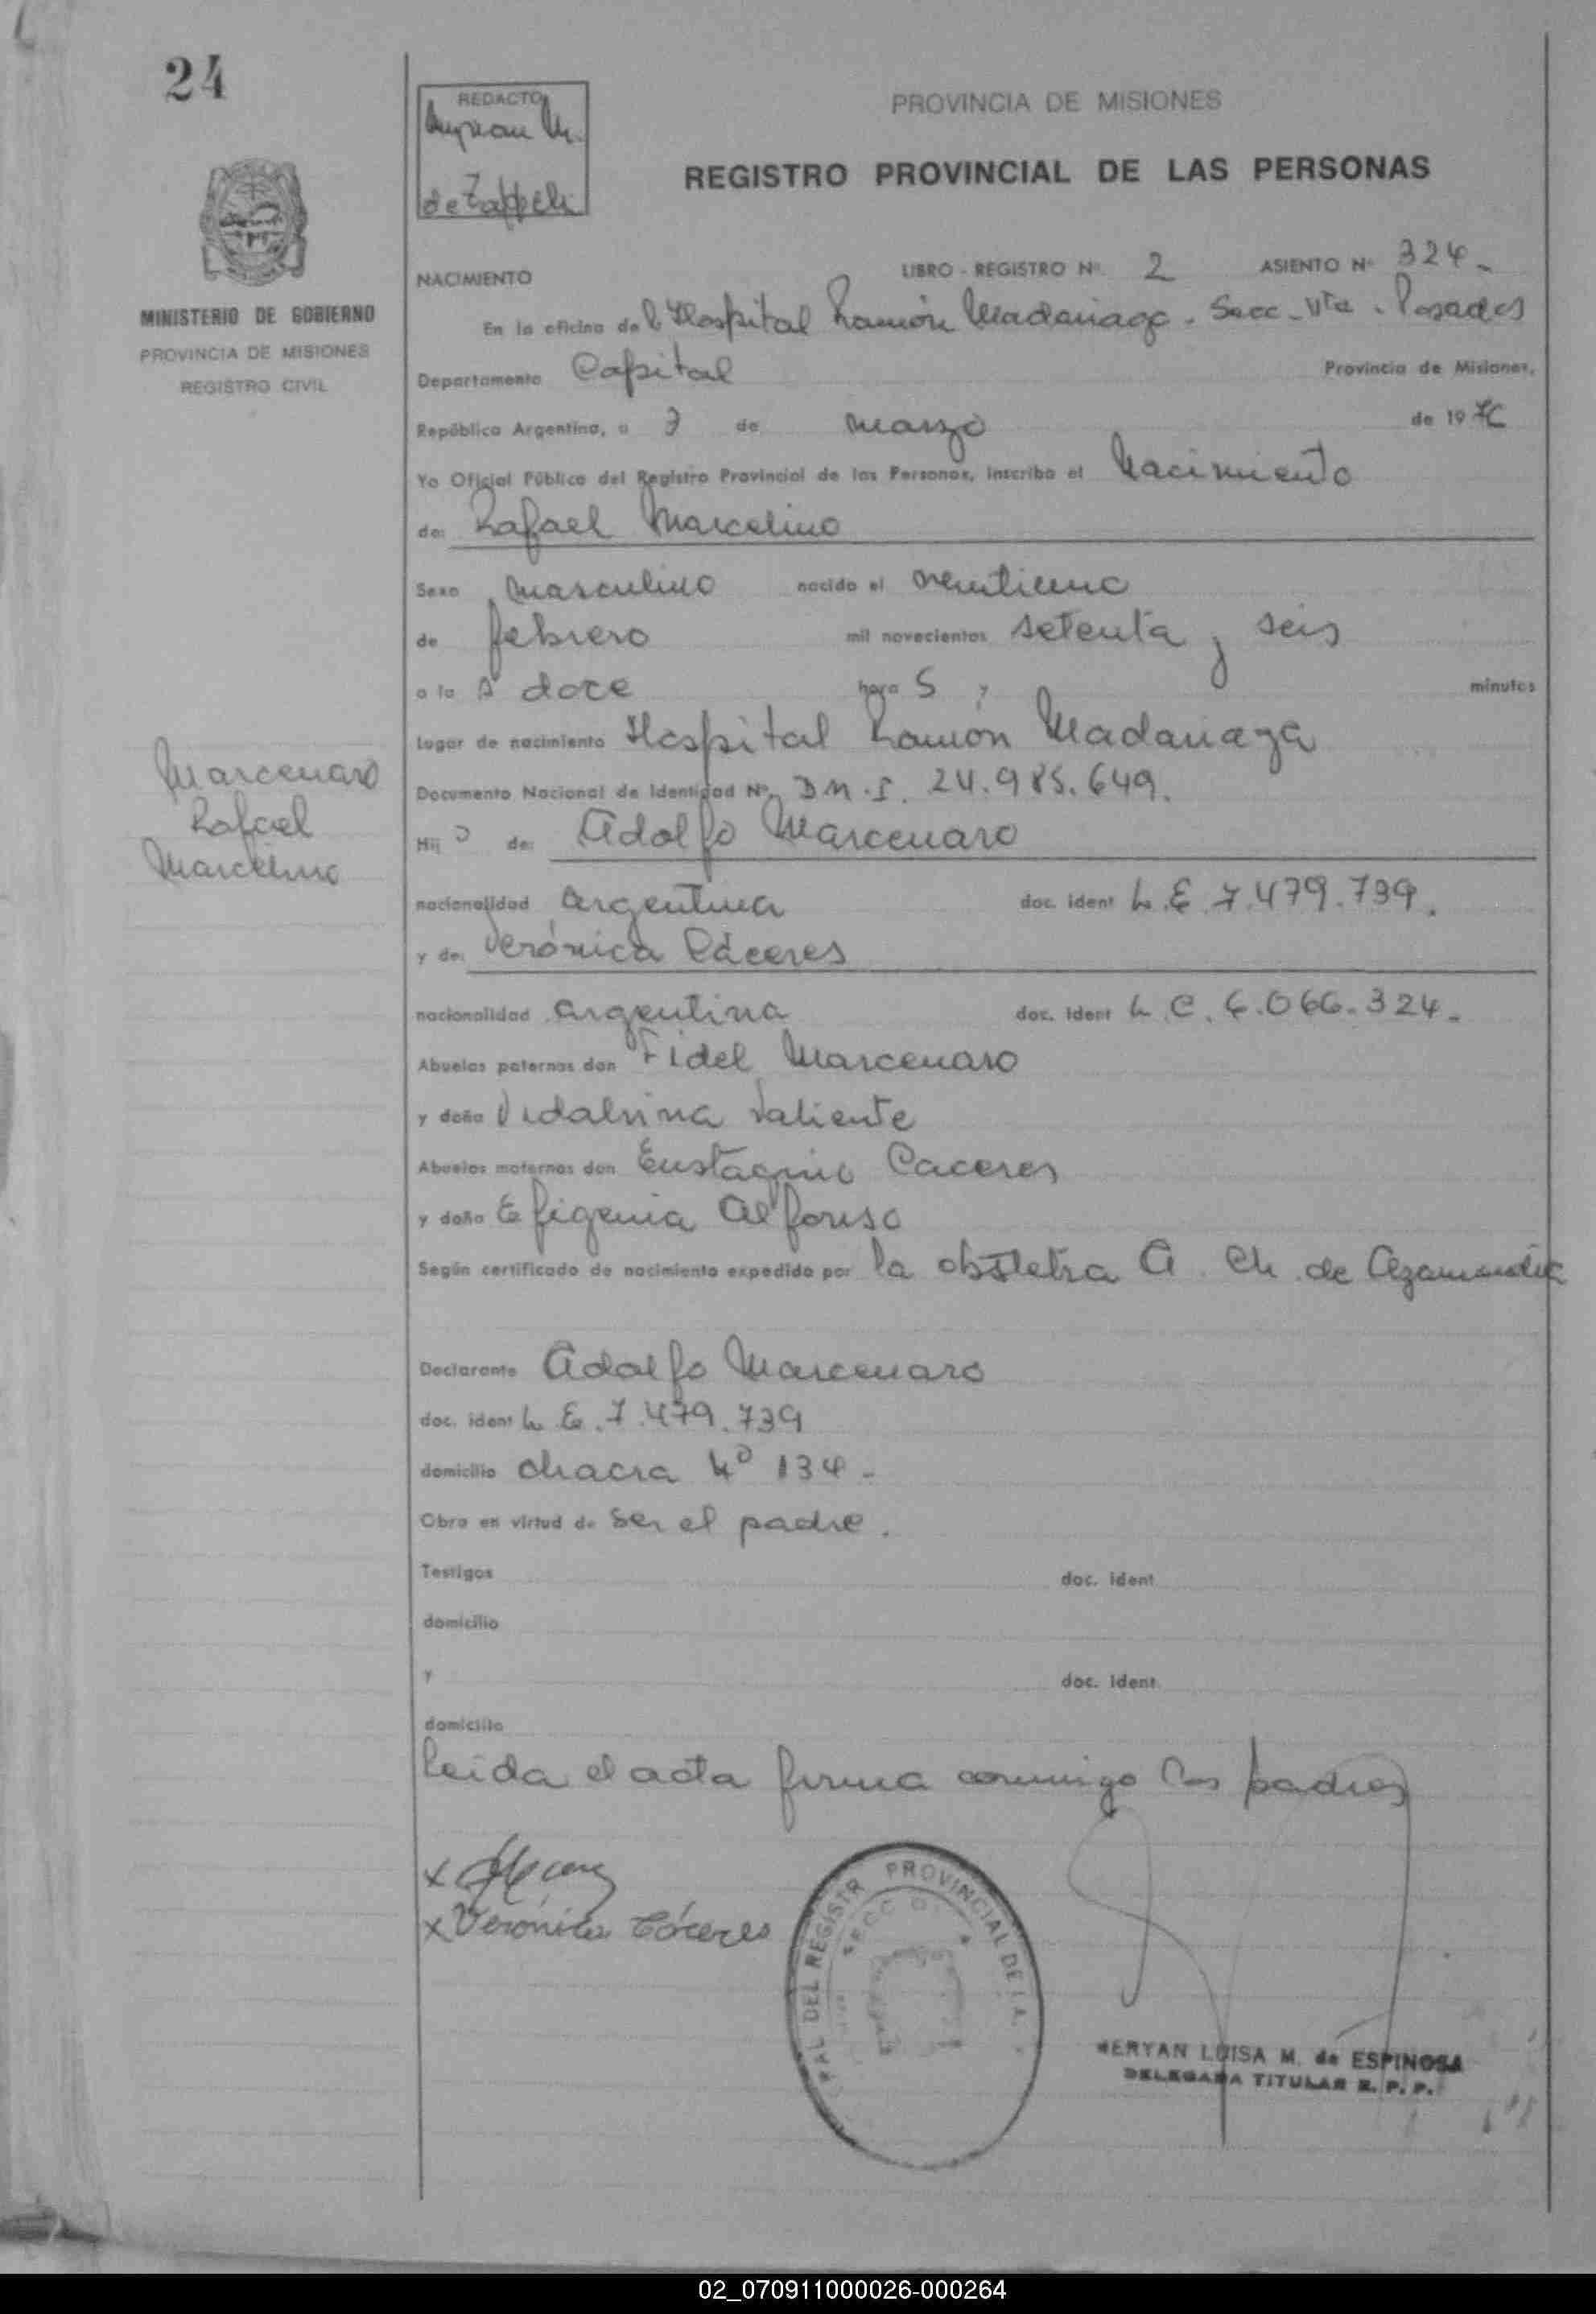 24
REDACTO
de Zappeli
PROVINCIA DE MISIONES
REGISTRO PROVINCIAL DE LAS PERSONAS
MINISTERIO DE GOBIERNO
PROVINCIA DE MISIONES
REGISTRO CIVIL
NACIMIENTO LIBRO - REGISTRO Nº. 2 ASIENTO Nº 324.-
En la oficina del Hospital Ramón Madariaga. Secc. Posadas
Departamento Capital Provincia de Misiones,
República Argentina, a 7 de marzo de 19 76
Yo Oficial Público del Registro Provincial de las Personas, inscribo el Nacimiento
de: Rafael Marcelino
Sexo masculino nacido el veintiuno
de febrero mil novecientos setenta y seis
a la s doce hora s y minutos
lugar de nacimiento Hospital Ramón Madariaga
Documento Nacional de Identidad Nº. D.N.I. 24.985.649.
Hij o de: Adolfo Marcenaro
Marcenaro
Rafael
Marcelino
nacionalidad argentina doc. ident L.E. 7.479.739.
y de: Verónica Cáceres
nacionalidad argentina doc. ident L.C. 6.066.324.-
Abuelos paternos don Fidel Marcenaro
y doña Vidalvina Valiente
Abuelos maternos don Eustaquio Caceres
y doña Efigenia Alfonso
Según certificado de nacimiento expedido por la obstetra A. Ch. de Azamendia
Declarante Adolfo Marcenaro
doc. ident L.E. 7.479.739
domicilio chacra Nº 134.-
Obra en virtud de ser el padre.
Testigos doc. ident
domicilio
y doc. ident.
domicilio
Leida el acta firma conmigo los padres
x
x Verónica Cáceres
PAL DEL REGISTR PROVINCIAL DE LA
SECC
MERYAN LUISA M. de ESPINOSA
DELEGADA TITULAR R. P. P.
02_070911000026-000264